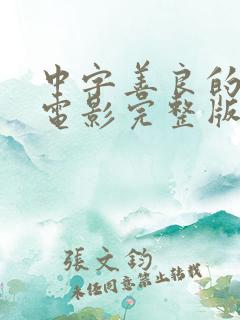 中字善良的
電影完整版
張文鈞
未经同意禁止转载